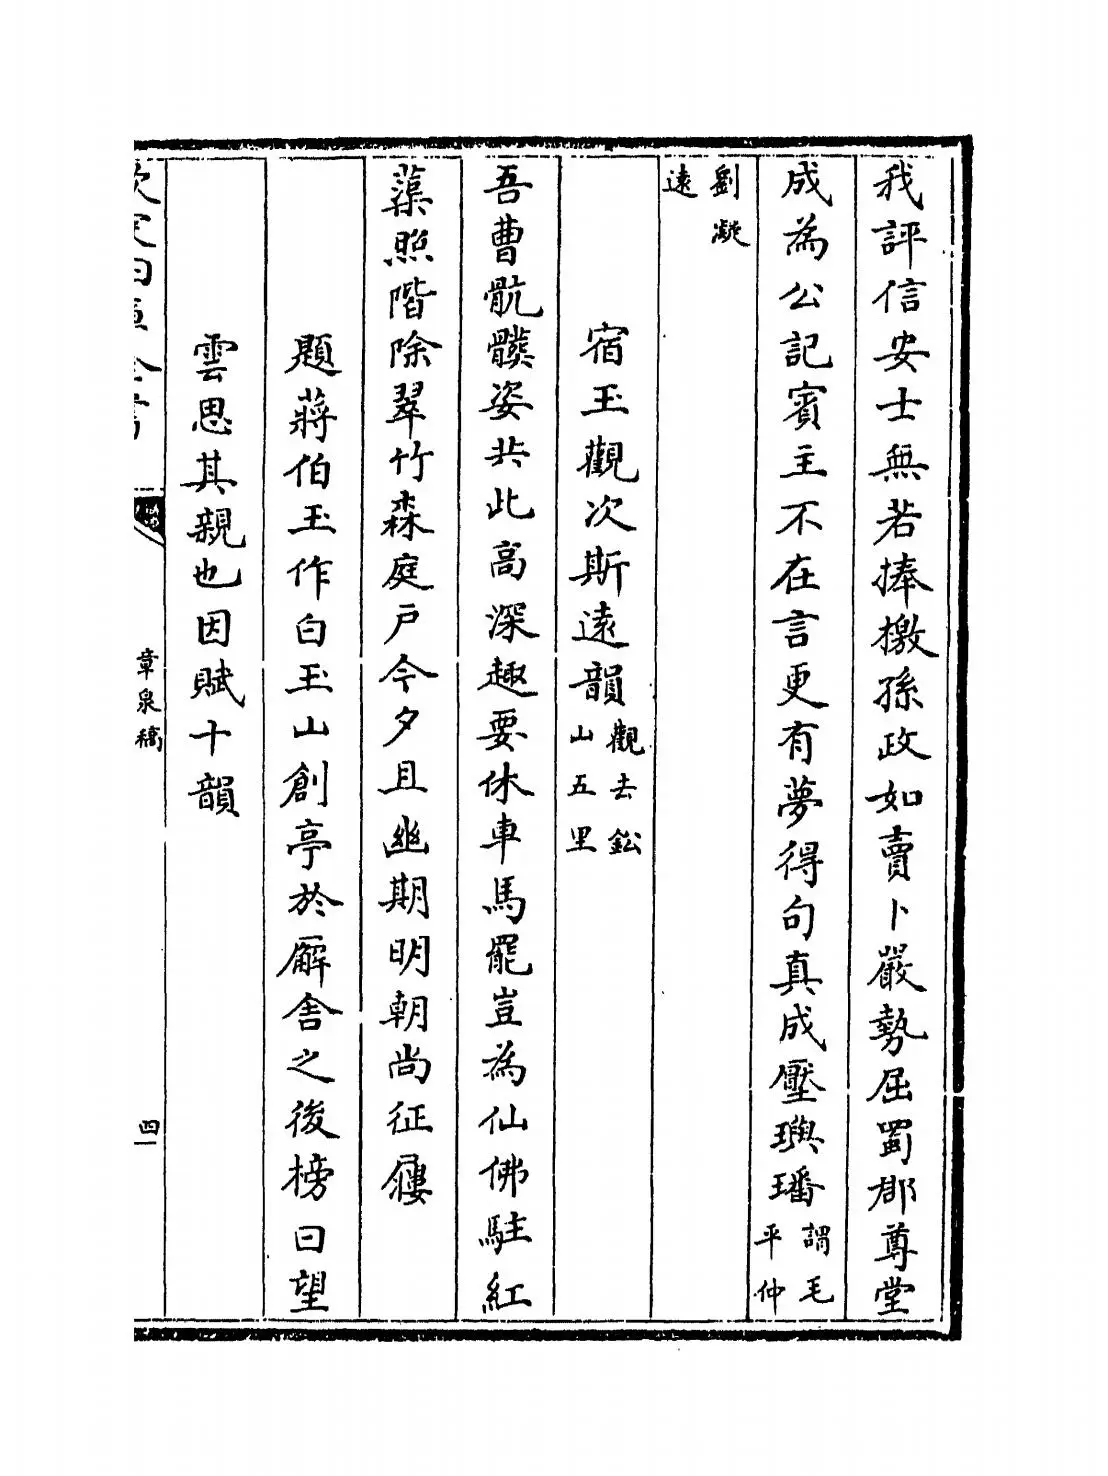 我評信安士無若捧檄孫政如賣卜嚴勢屈蜀郡尊堂
成為公記賓主不在言更有夢得句真成壓璵璠謂毛平仲
劉凝遠
宿玉觀次斯遠韻觀去鉛山五里
吾曹骯髒姿共此高深趣要休車馬罷豈為仙佛駐紅
蕖照階除翠竹森庭戶今夕且幽期明朝尚征屨
題蔣伯玉作白玉山創亭於廨舍之後榜曰望
雲思其親也因賦十韻
欽定四庫全書
章泉稿
四